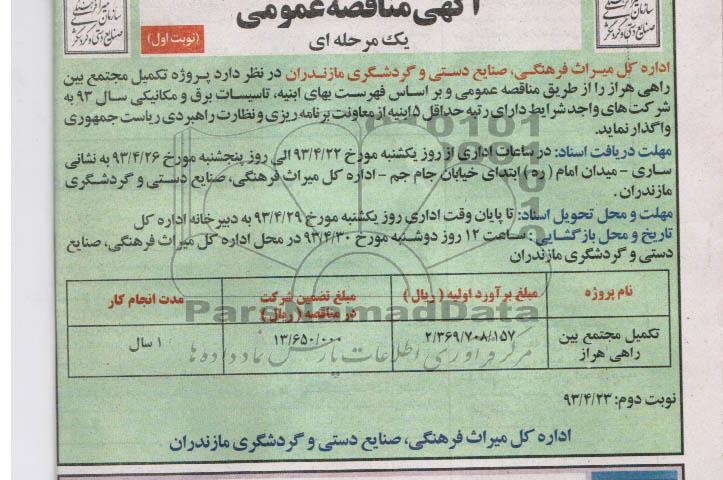 آگهی مناقصه عمومی
یک مرحله ای
(نوبت اول)
اداره کل میراث فرهنگی، صنایع دستی و گردشگری مازندران در نظر دارد پروژه تکمیل مجتمع بین
راهی هراز را از طریق مناقصه عمومی و بر اساس فهرست بهای ابنیه، تاسیسات برق و مکانیکی سال ۹۳ به
شرکت های واجد شرایط دارای رتبه حداقل ۵ ابنیه از معاونت برنامه ریزی و نظارت راهبردی ریاست جمهوری
واگذار نماید.
مهلت دریافت اسناد: در ساعات اداری از روز یکشنبه مورخ ۹۳/۴/۲۲ الی روز پنجشنبه مورخ ۹۳/۴/۲۶ به نشانی
ساری - میدان امام (ره) ابتدای خیابان جام جم - اداره کل میراث فرهنگی، صنایع دستی و گردشگری
مازندران.
مهلت و محل تحویل اسناد: تا پایان وقت اداری روز یکشنبه مورخ ۹۳/۴/۲۹ به دبیرخانه اداره کل
تاریخ و محل بازگشایی: ساعت ۱۲ روز دوشنبه مورخ ۹۳/۴/۳۰ در محل اداره کل میراث فرهنگی، صنایع
دستی و گردشگری مازندران
نام پروژه
مبلغ برآورد اولیه (ریال)
مبلغ تضمین شرکت
در مناقصه (ریال)
مدت انجام کار
تکمیل مجتمع بین
راهی هراز
۲/۳۶۹/۷۰۸/۱۵۷
۱۳/۶۵۰/۰۰۰
۱ سال
ParsNamadData
مرکز فرآوری اطلاعات پارس نماد داده ها
نوبت دوم: ۹۳/۴/۲۳
اداره کل میراث فرهنگی، صنایع دستی و گردشگری مازندران